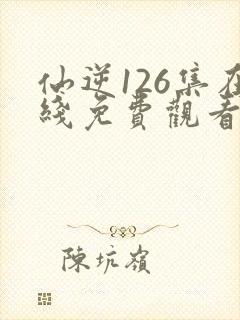 仙逆126集在
綫免費觀看
陳坑嶺